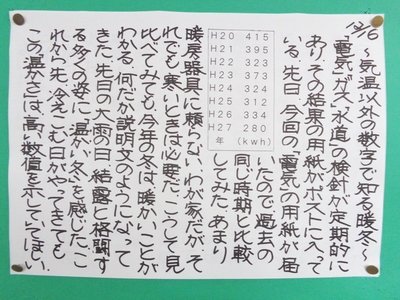 12/6 〜気温以外の数字で知る暖冬〜
「電気」「ガス」「水道」の検針が定期的に
あり、その結果の用紙がポストに入って
いる。先日、今回の「電気」の用紙が届
いたので過去の
同じ時期と比較
してみた。あまり
H20 415
H21 395
H22 323
H23 373
H24 324
H25 312
H26 334
H27 280
年 (kwh)
暖房器具に頼らない、わが家だが、そ
れでも、寒いときは必要だ。こうして見
比べてみても、今年の冬は、暖かいことが
わかる。何だか説明文のようになって
きた。先日の大雨の日、結露と格闘す
る多くの姿に「温かい冬」を感じた。こ
れから先、冷えこむ日がやってきても
この「温かさ」は、高い数値を示していてほしい。